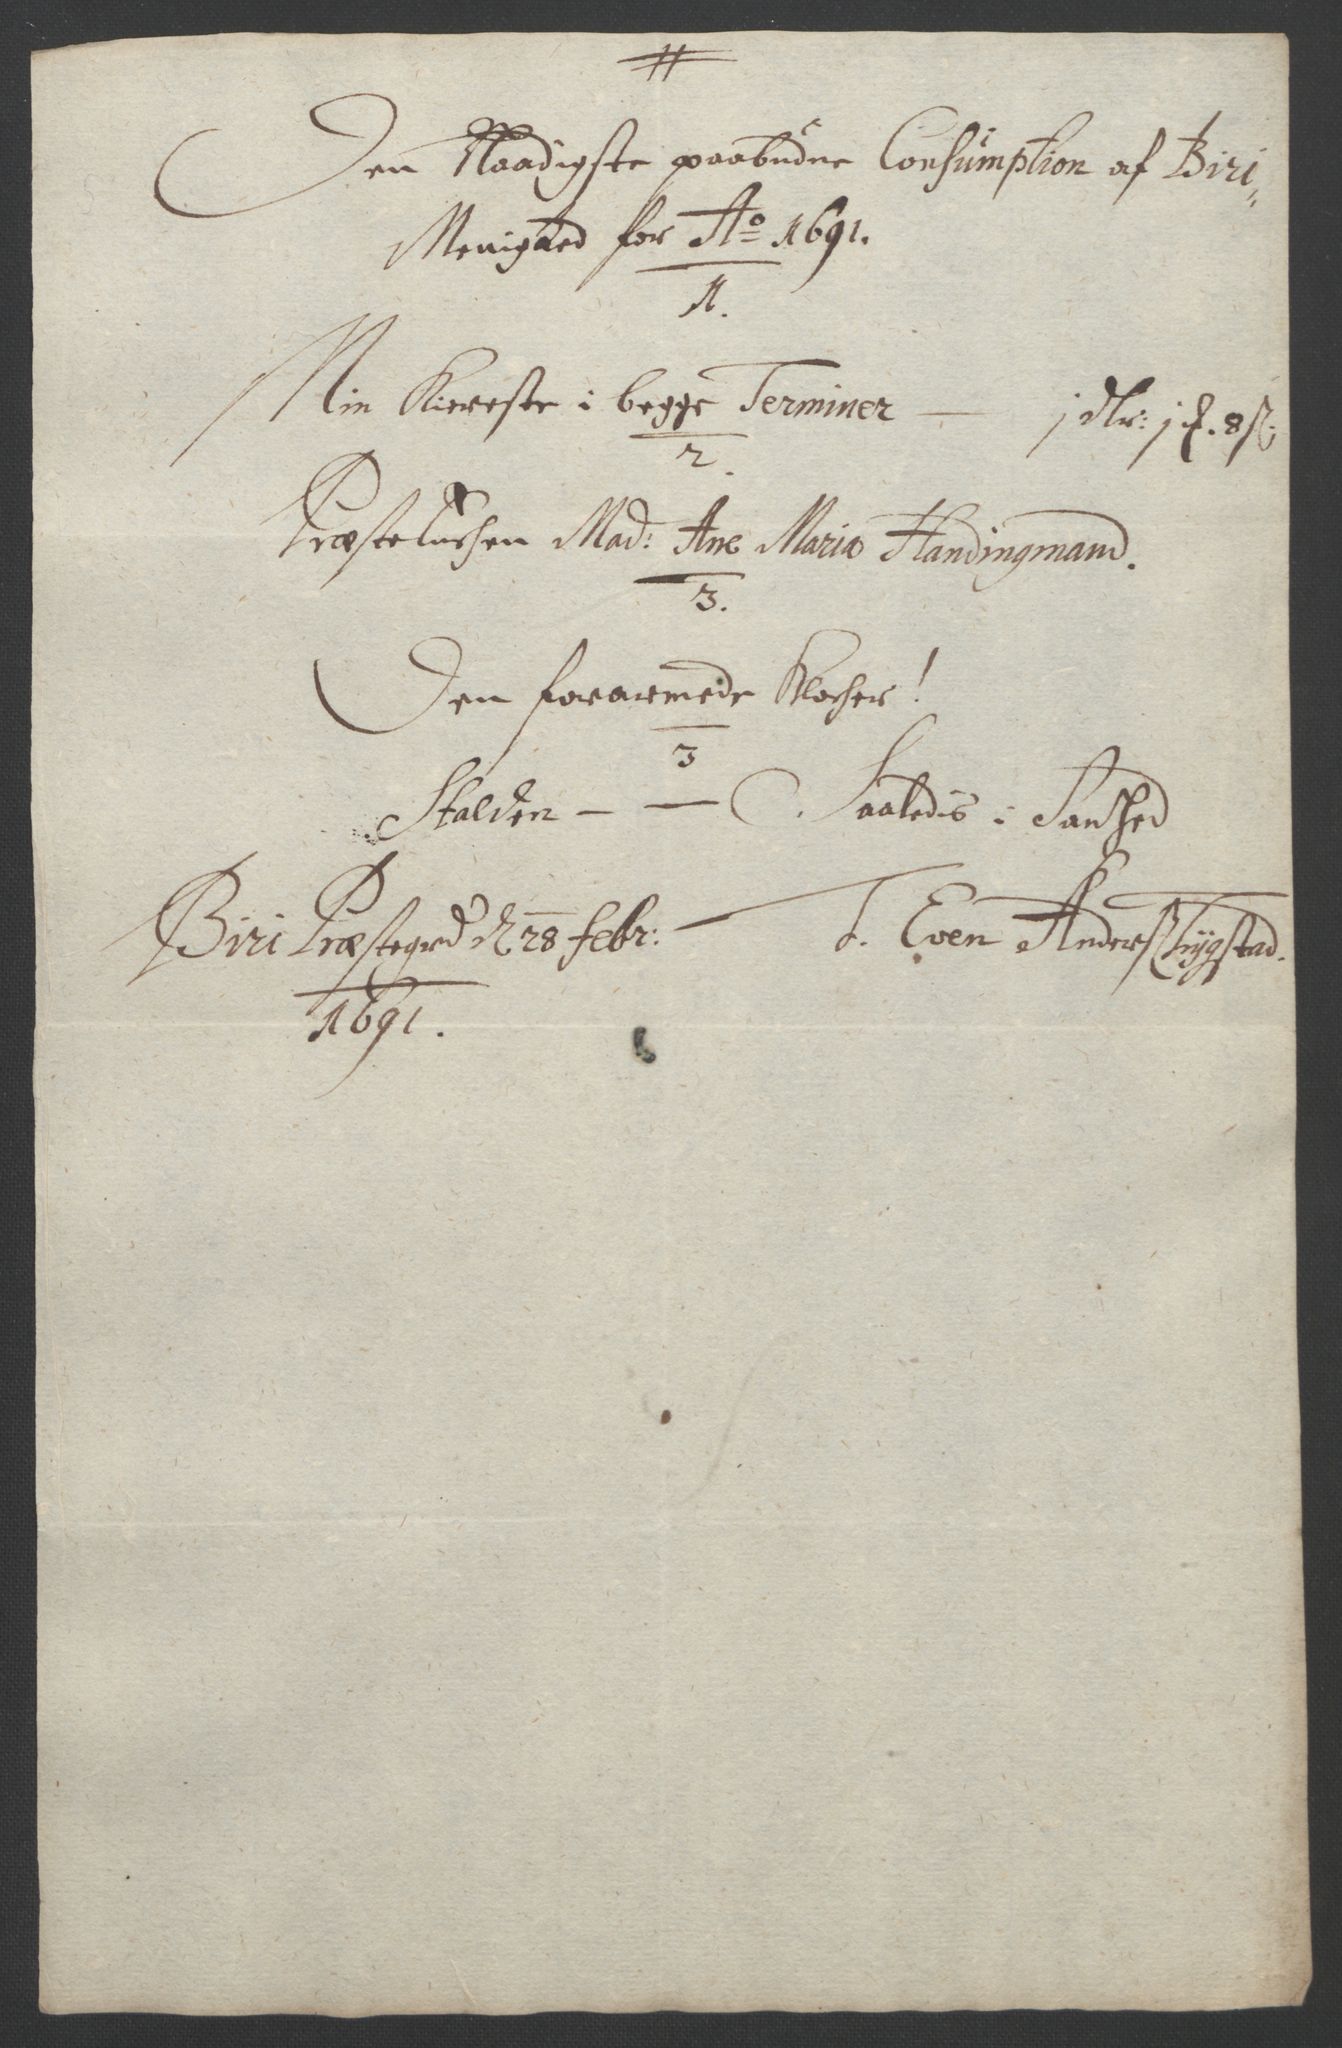 Den Naadigste paabudne Consumption af Biri
Menighed for Ao 1691.
1.
Min Kiereste i begge Terminer — j dlr: j ₰. 8 ß.
2.
Præstelnchen Mad: Ane Maria Handingmand.
3.
Den forarmede Klocher!
3
Stalden — — Saaledis i Sandhed
Biri Præstegrd d 28 febr: — T. Even Anders Lÿgstad.
1691.